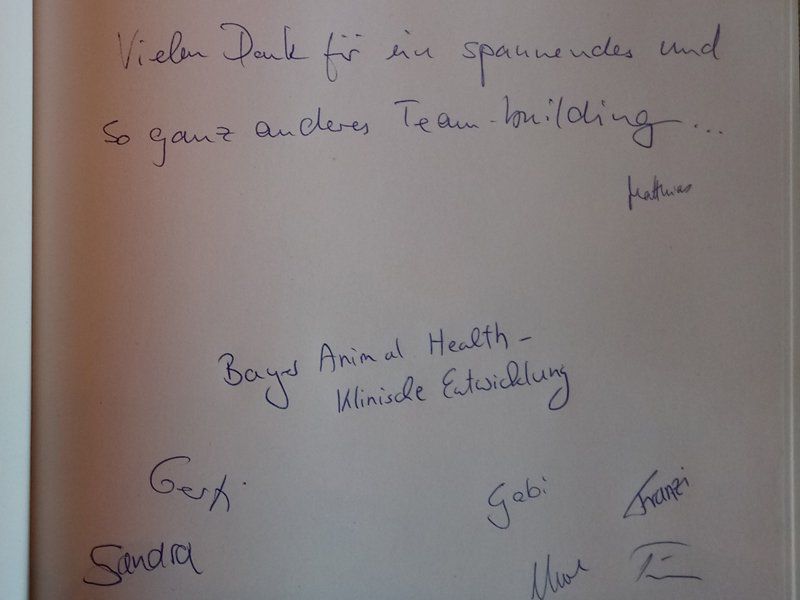 Vielen Dank für ein spannendes und
so ganz anderes Team-building...
Matthias
Bayer Animal Health -
Klinische Entwicklung
Gabi Franzi
Sandra